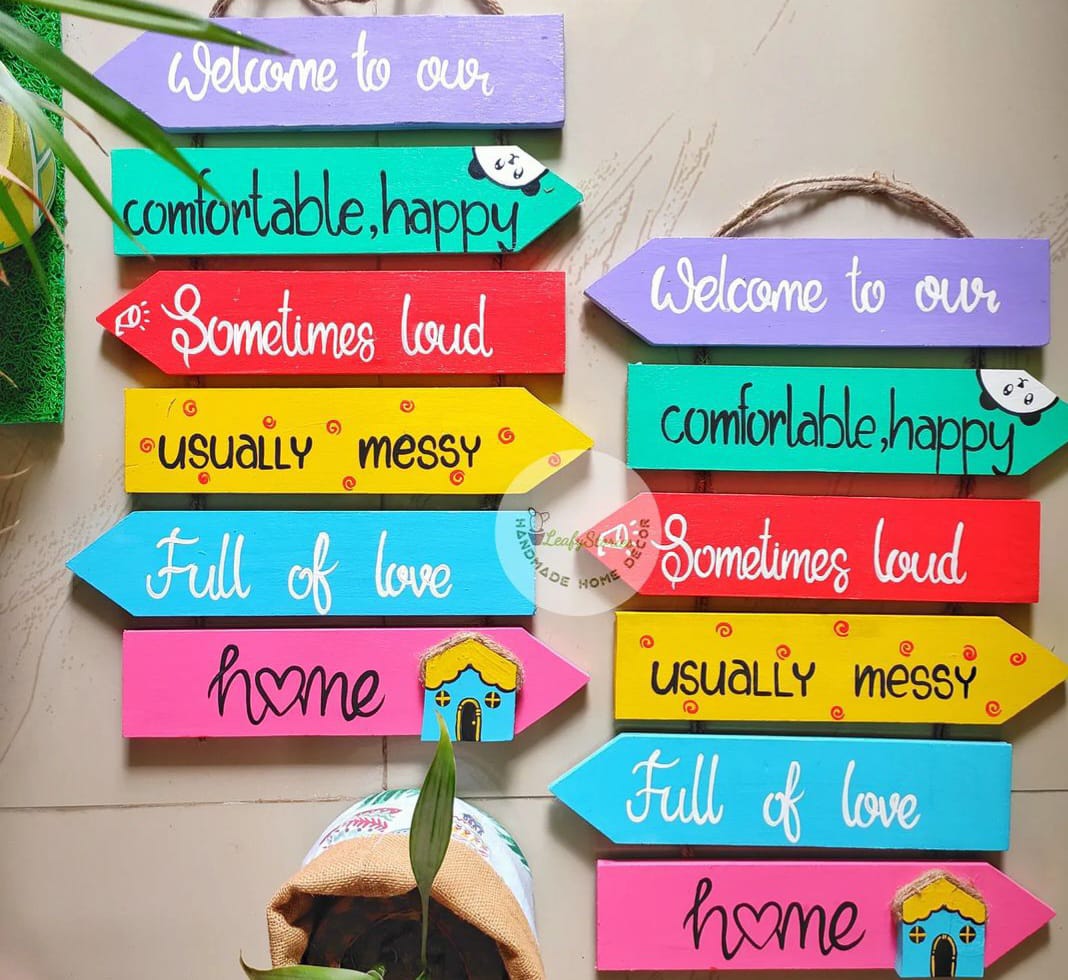 Welcome to our
comfortable, happy
Sometimes loud
usually messy
Full of love
home
Welcome to our
comforlable, happy
Sometimes loud
usually messy
Full of love
home
LeafyStories
HANDMADE HOME DECOR